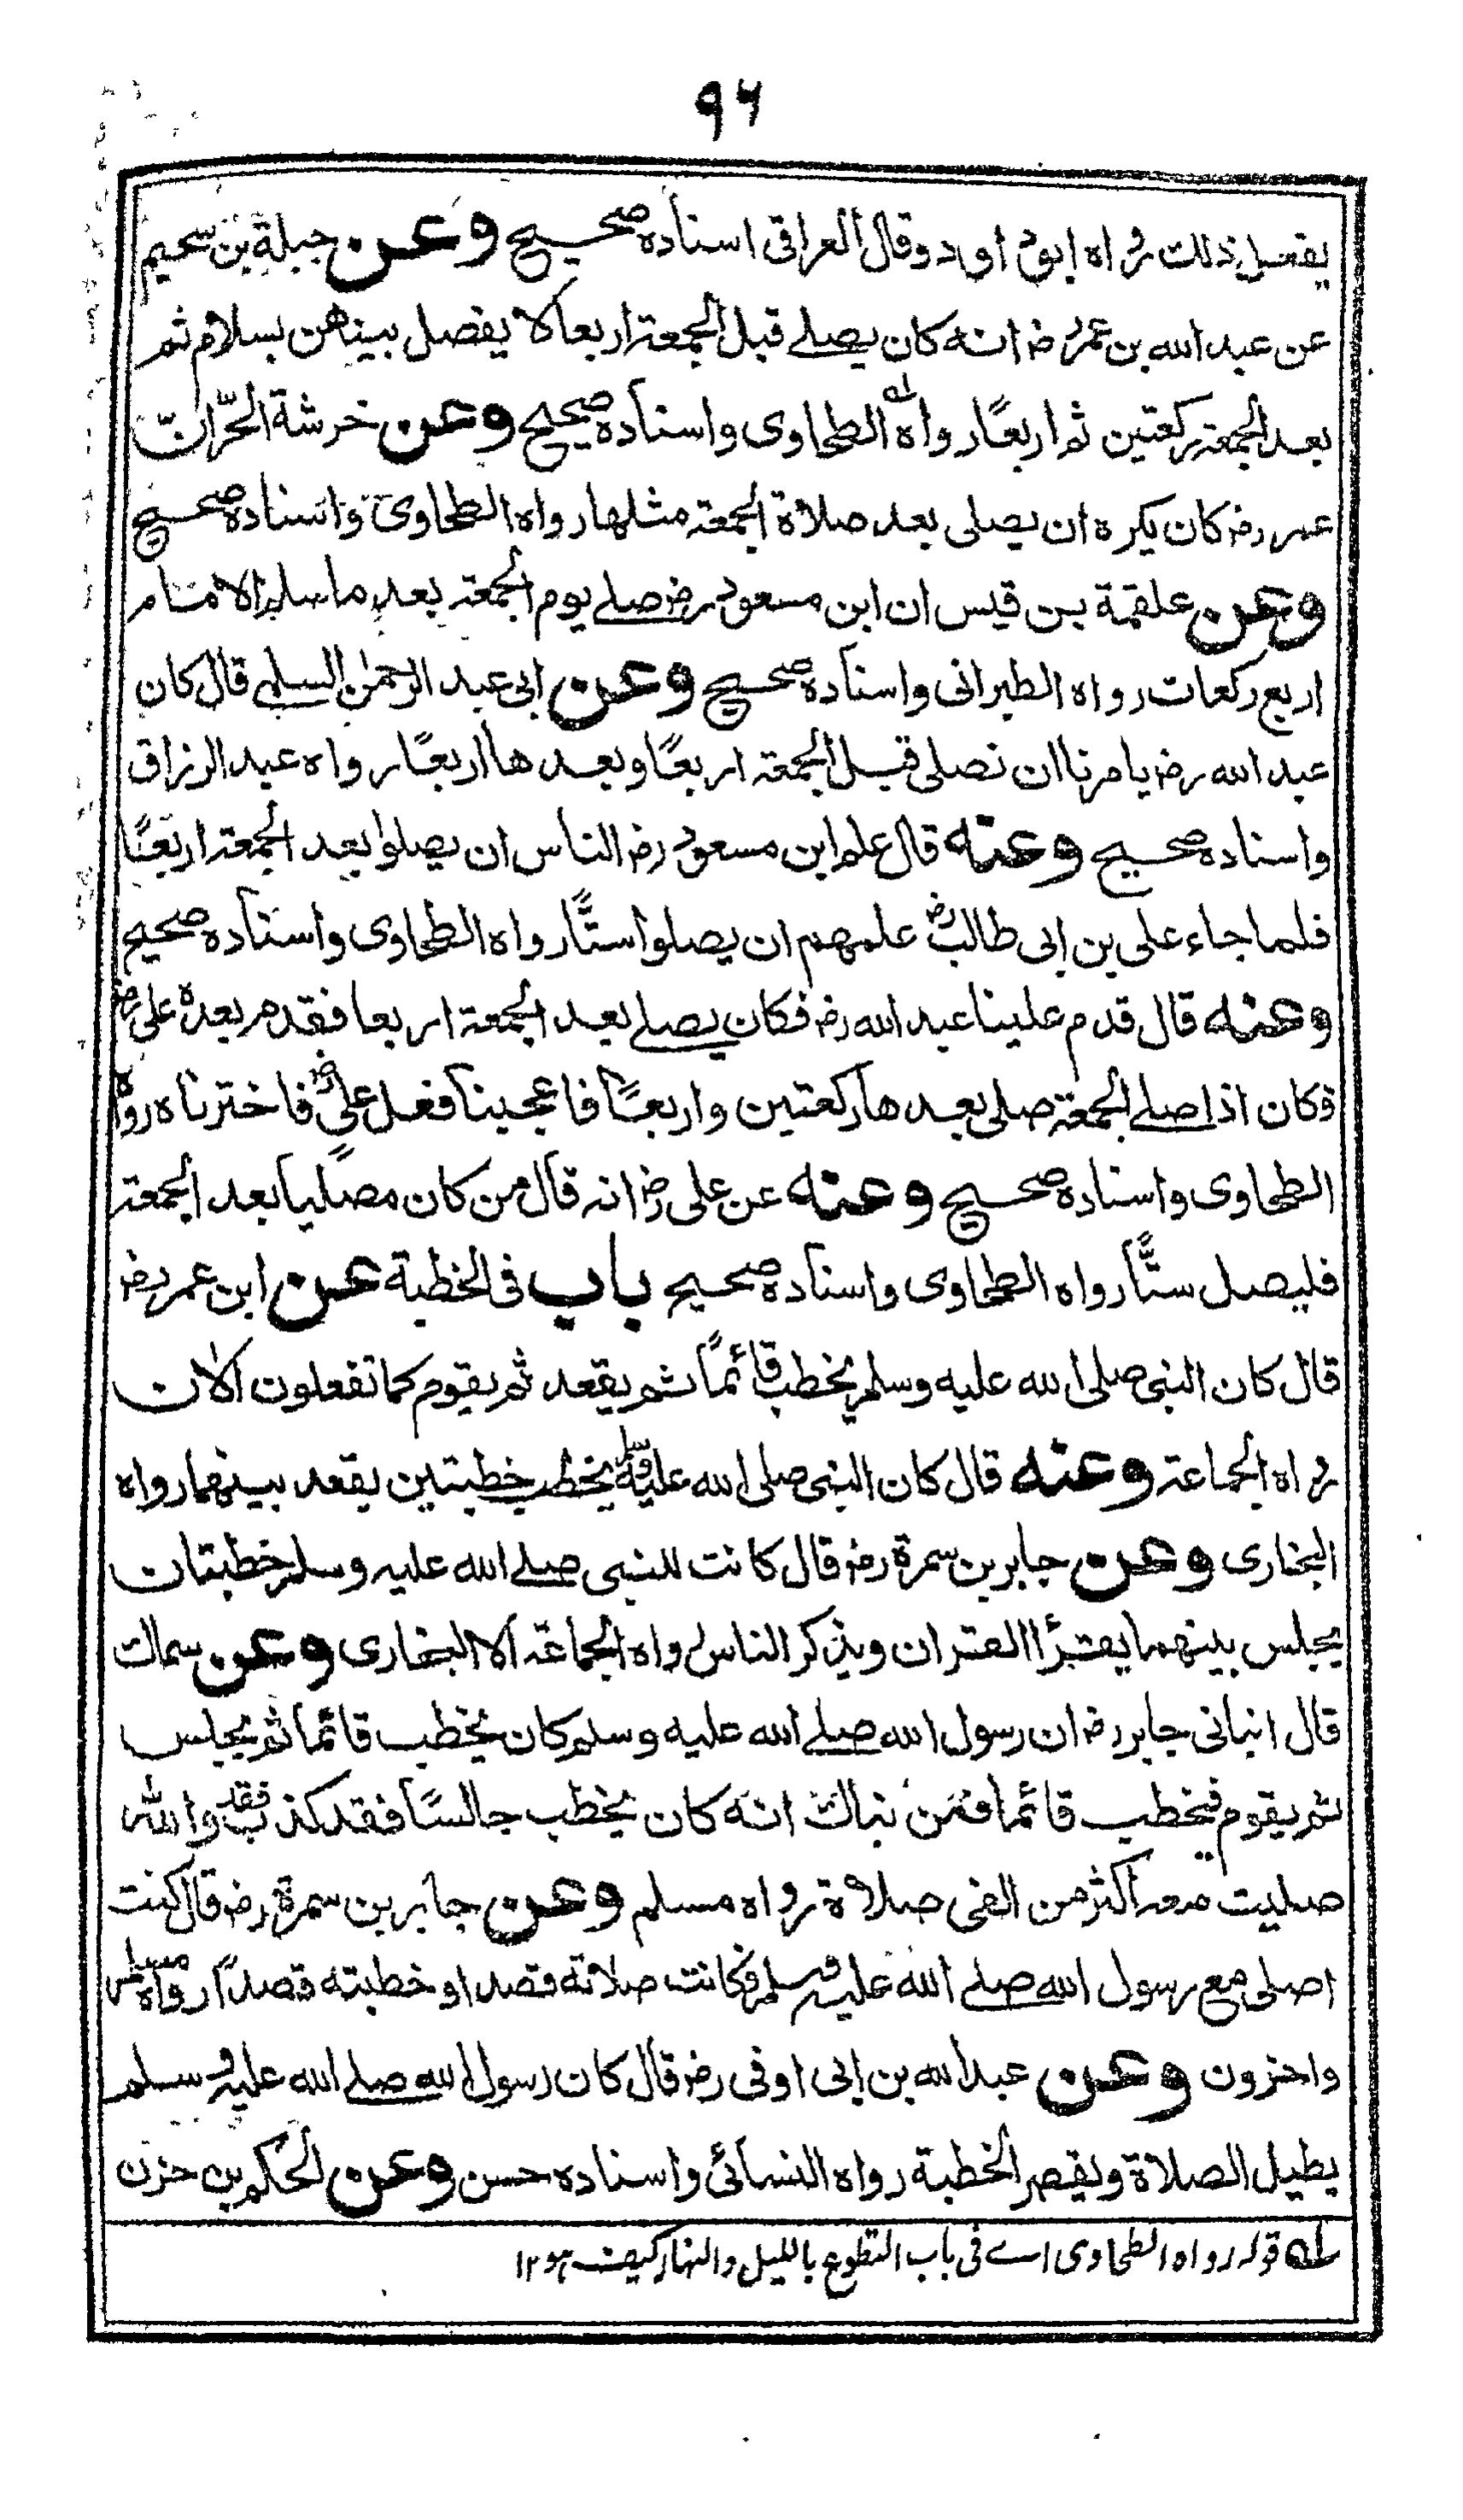 ۹۶
يفعل ذلك رواه ابو داود وقال العراقى اسناده صحيح وعن جبلة بن سحيم
عن عبد الله بن عمر رض انه كان يصلے قبل الجمعة اربعا لا يفصل بينهن بسلام ثم
بعد الجمعة ركعتين ثم اربعًا رواه الطحاوى واسناده صحيح وعن خرشة الحرّان
عمر رض كان يكره ان يصلى بعد صلاة الجمعة مثلها رواه الطحاوى واسناده صحيح
وعن علقمة بن قيس ان ابن مسعود رض صلے يوم الجمعة بعد ما سلم الامام
اربع ركعات رواه الطبرانى واسناده صحيح وعن ابى عبد الرحمن السلمے قال كان
عبد الله رض يامرنا ان نصلى قبل الجمعة اربعًا وبعدها اربعًا رواه عبد الرزاق
واسناده صحيح وعنه قال علم ابن مسعود رض الناس ان يصلوا بعد الجمعة اربعًا
فلما جاء على بن ابى طالب رض علمهم ان يصلوا ستًّا رواه الطحاوى واسناده صحيح
وعنه قال قدم علينا عبد الله رض فكان يصلے بعد الجمعة اربعا فقدم بعده على رض
فكان اذا صلے الجمعة صلى بعدها ركعتين واربعًا فاعجبنا فعل على رض فاخترناه رواه
الطحاوى واسناده صحيح وعنه عن على رض انه قال من كان مصليًا بعد الجمعة
فليصل ستًّا رواه الطحاوى واسناده صحيح باب فى الخطبة عن ابن عمر رض
قال كان النبى صلى الله عليه وسلم يخطب قائمًا ثم يقعد ثم يقوم كما تفعلون الاٰن
رواه الجماعة وعنه قال كان النبى صلى الله عليه وسلم يخطب خطبتين يقعد بينهما رواه
البخارى وعن جابر بن سمرة رض قال كانت للنبى صلے الله عليه وسلم خطبتان
يجلس بينهما يقرأ القران ويذكر الناس رواه الجماعة الا البخارى وعن سماك
قال انبانى جابر رض ان رسول الله صلے الله عليه وسلم كان يخطب قائما ثم يجلس
ثم يقوم فيخطب قائما فمن نباك انه كان يخطب جالسًا فقد كذب فقد والله
صليت معه اكثر من الفى صلاة رواه مسلم وعن جابر بن سمرة رض قال كنت
اصلى مع رسول الله صلے الله عليه وسلم فكانت صلاته قصدا وخطبته قصدًا رواه مسلم
واخرون وعن عبد الله بن ابى اوفى رض قال كان رسول الله صلے الله عليه وسلم
يطيل الصلاة ويقصر الخطبة رواه النسائى واسناده حسن وعن الحكم بن حزن
لـه قوله رواه الطحاوى اے فى باب التطوع بالليل والنهار كيف هو ۱۲